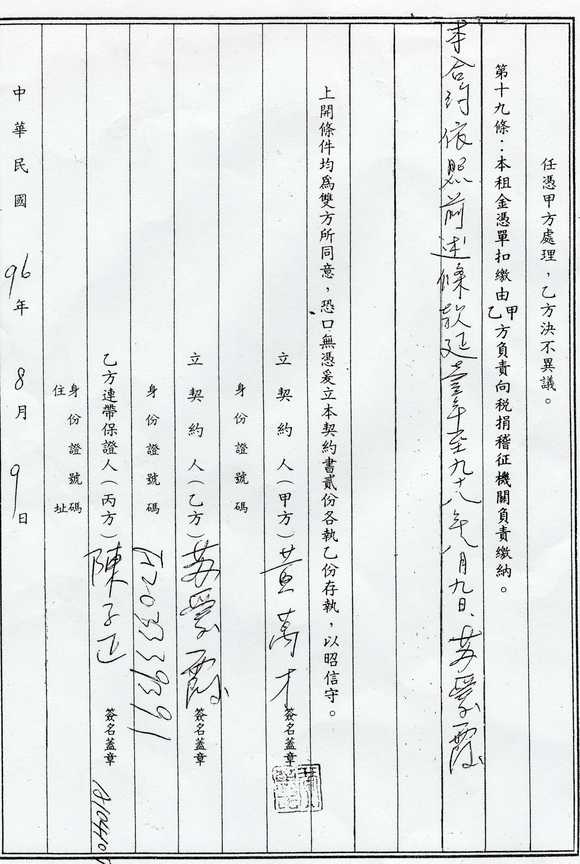 任憑甲方處理，乙方決不異議。
第十九條：本租金憑單扣繳由甲乙方負責向稅捐稽征機關負責繳納。
本合約依照前述條款延壹年至九十八年八月九日、苏愛霞
上開條件均為雙方所同意，恐口無憑爰立本契約書貳份各執乙份存執，以昭信守。
立契約人（甲方）黃萬才簽名蓋章
身份證號碼
立契約人（乙方）苏愛霞簽名蓋章
身份證號碼
乙方連帶保證人（丙方）陳子正簽名蓋章
身份證號碼
住址
中華民國96年8月9日